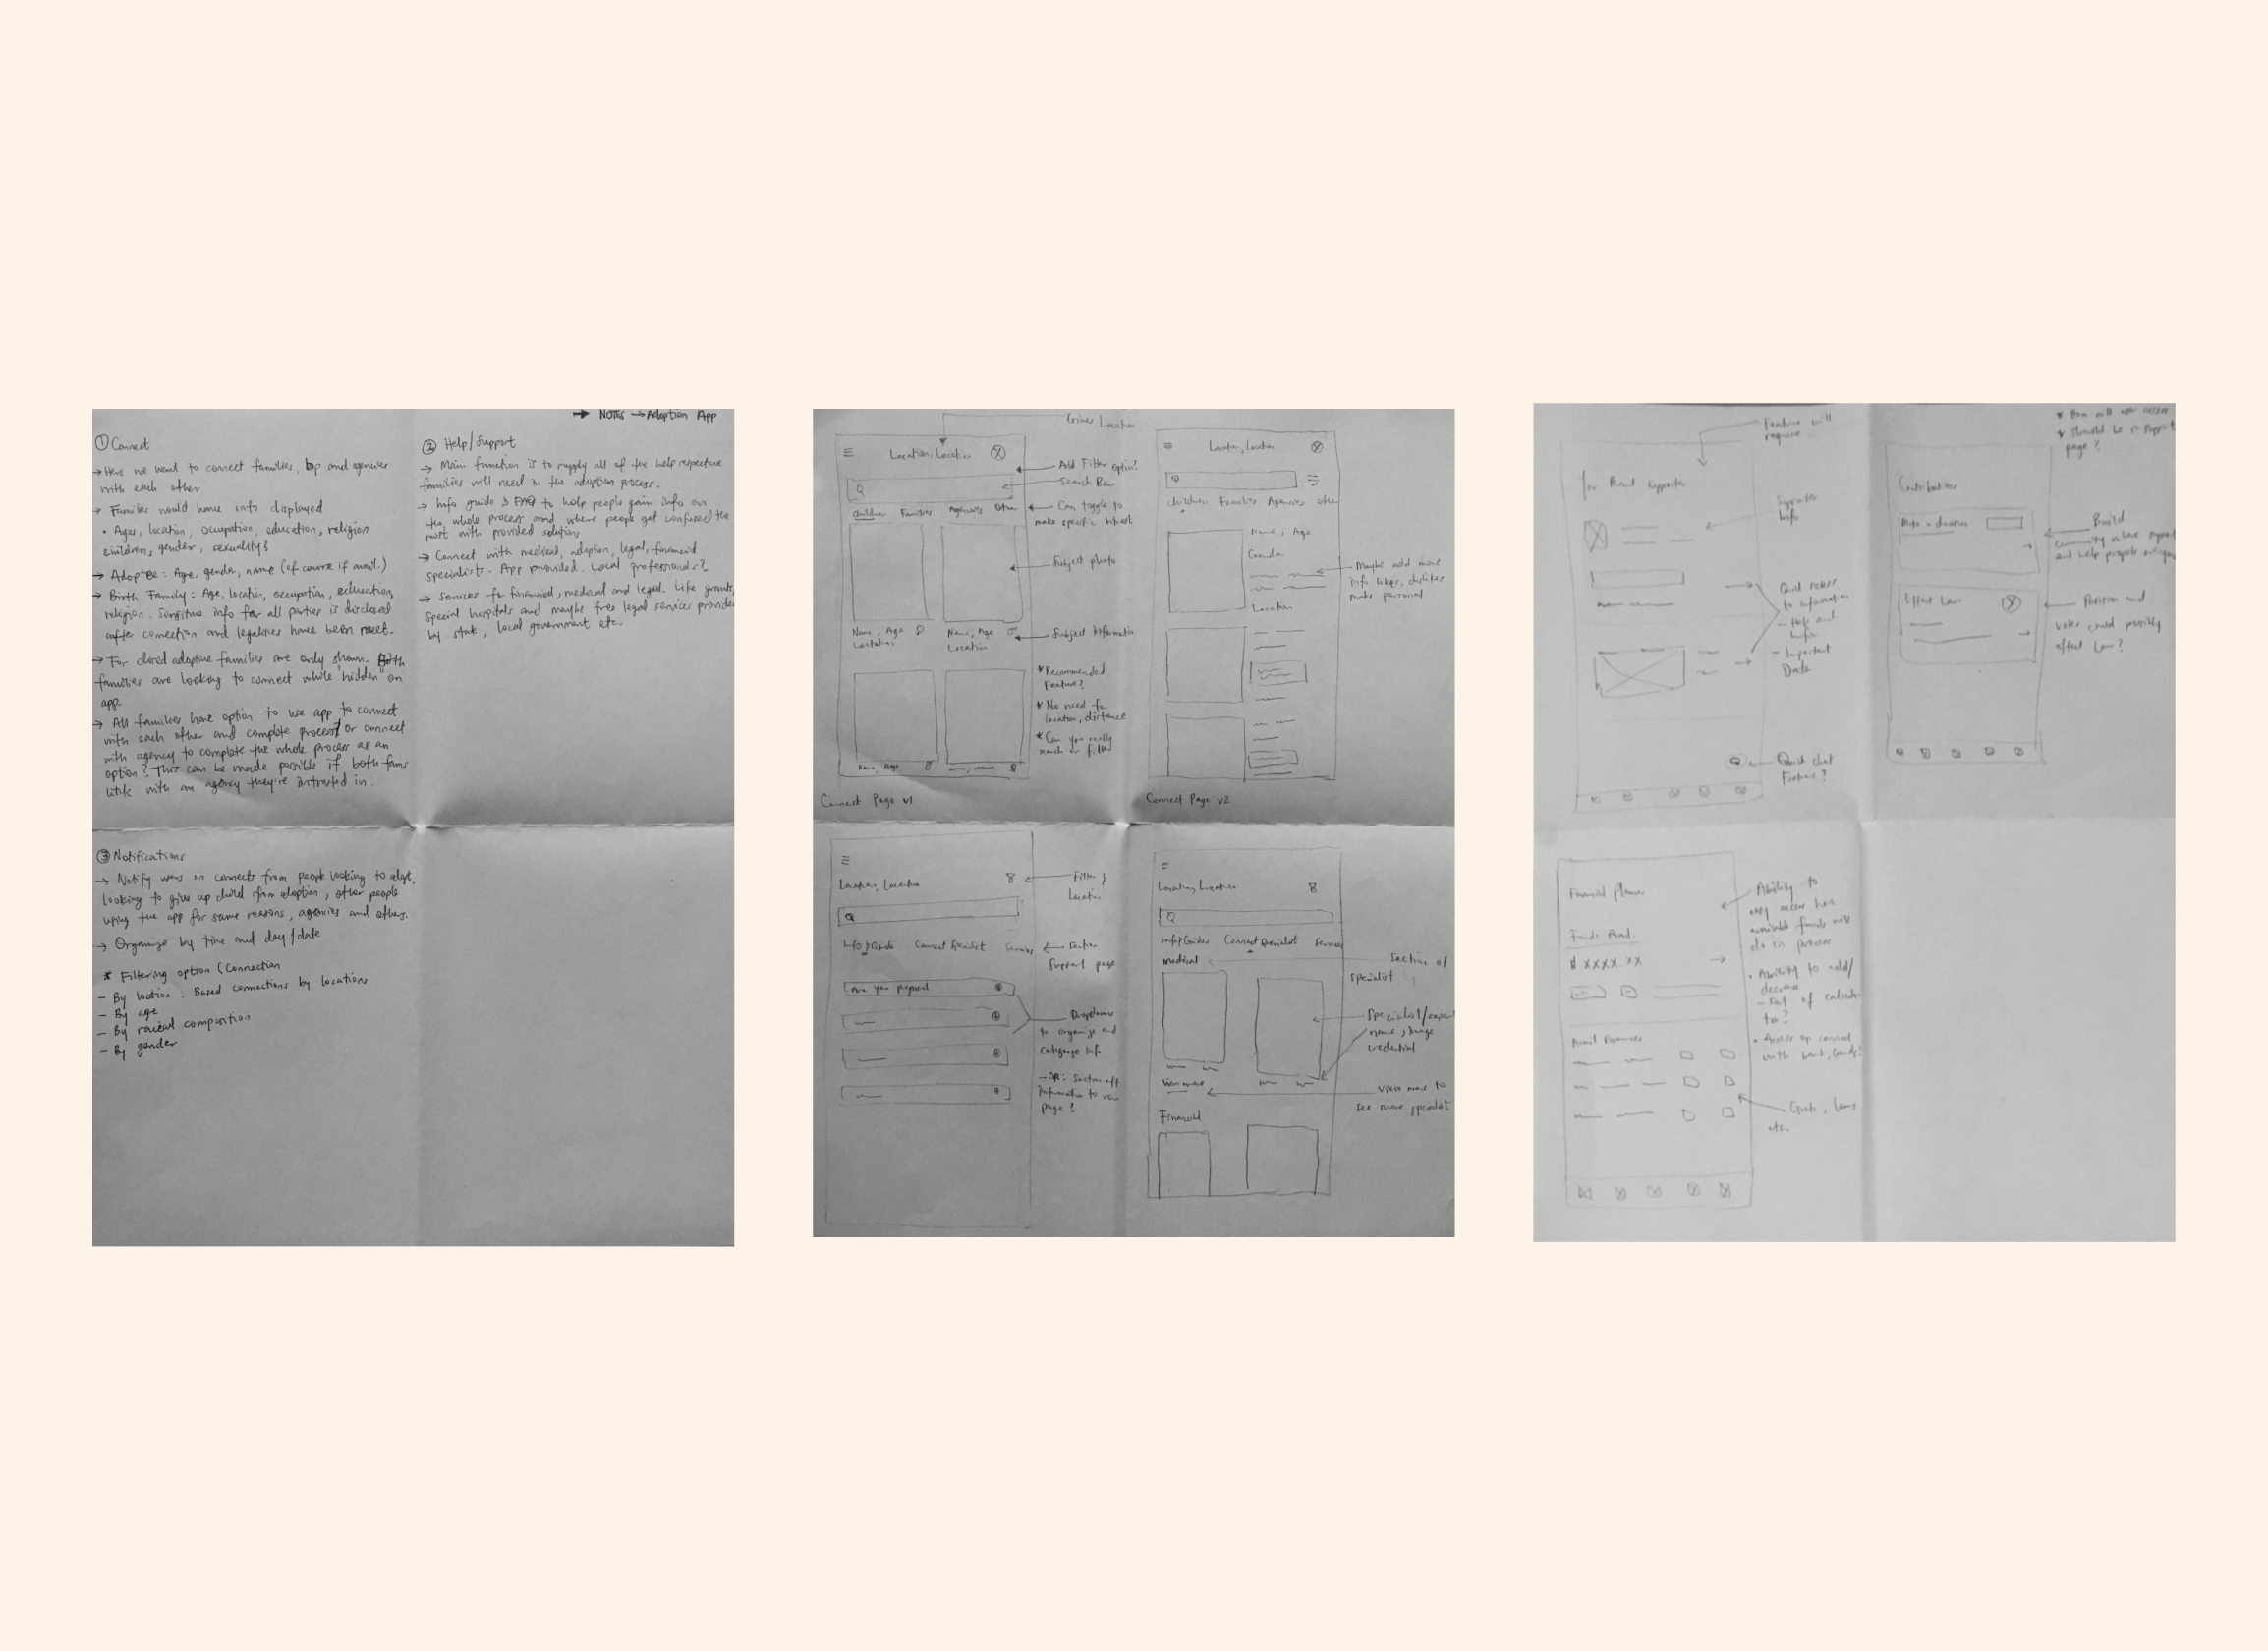 → NOTES → Adoption App
① Connect
→ Here we want to connect families, bp and agencies
with each other
→ Families would have info displayed
• Ages, location, occupation, education, religion
children, gender, sexuality?
→ Adoptee: Age, gender, name (of course if avail.)
→ Birth Family: Age, location, occupation, education,
religion. Sensitive info for all parties is disclosed
after connection and legalities have been meet.
→ For closed adoptive families are only shown. Birth
families are looking to connect while "hidden" on
app.
→ All families have option to use app to connect
with each other and complete process/or connect
with agency to complete the whole process as an
option? This can be made possible if both fams
with an agency they're intrested in.
② Help/Support
→ Main function is to supply all of the help respective
families will need in the adoption process.
→ Info guide & FAQ to help people gain info on
the whole process and where people get confused the
most with provided solution
→ Connect with medical, adoption, legal, financial
specialists. App provided. Local professionals?
→ Services for financial, medical and legal. Like grants,
special hospitals and maybe free legal services provided
by state, local government etc.
③ Notifications
→ Notify users on connects from people looking to adopt,
looking to give up child from adoption, other people
using the app for same reasons, agencies and others.
→ Organize by time and day/date
* Filtering option (Connection
- By location: Based connections by locations
- By age
- By racial composition
- By gender
Gives Location
Location, Location
Add Filter option?
Search Bar
Children Families Agencies Other
Can toggle to
make specific
Subject photo
Name, Age
Location
Name, Age
Location
Subject information
* Recommended
Feature?
* No need for
location, distance
* Can you really
search or filter
Name, Age
Connect Page v1
Location, Location
children Families Agencies other
Name, Age
Gender
Location
Maybe add more
info likes, dislikes
make personal
Connect Page v2
Location, Location
Filter &
Location
Info & Guide Connect Specialist Services
Section
Support page
Are you pregnant
Dropdowns
to organize and
categorize info
- OR: Section off
information to new
page?
Location, Location
Info & Guides Connect Specialist Services
Medical
Section of
specialist
Specialist/expert
name, image
credential
View more
View more to
see more specialist
Financial
Feature will
require
Your
Supporter
info
Quick access
to information
- Help and
info
- Important
Data
Quick chat
Feature?
* Should be in support
page?
Contributions
Make a donation
Build
community where
and help
Effect Law
Petition and
votes could possibly
affect Law?
Financial Planner
Funds Avail.
$ XXXX.XX
Ability to
available funds will
in process
• Ability to add/
decrease
- sort of calcula-
tor?
• Access or connect
with bank, cards?
Grants, loans
etc.